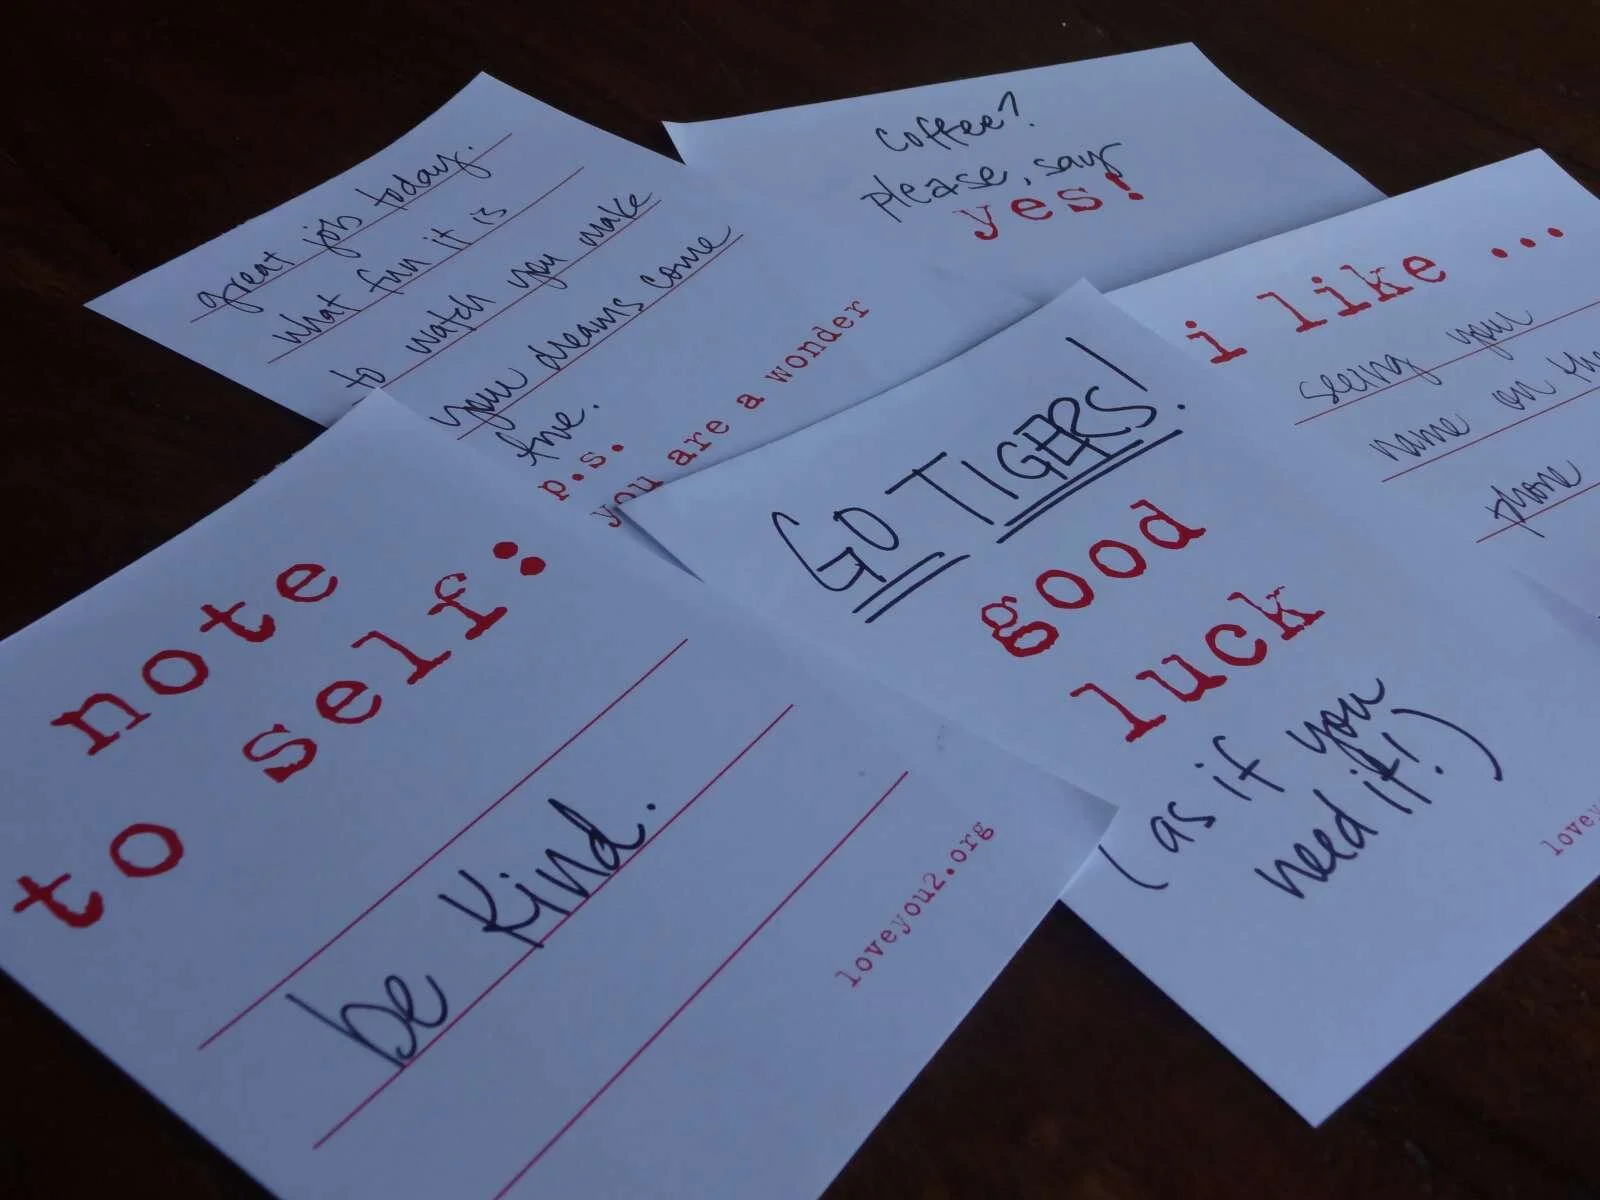 great job today.
what fun it is
to watch you make
your dreams come
true.
p.s.
you are a wonder
coffee?
please, say
yes!
i like ...
seeing your
name on the
phone
GO TIGERS!
good
luck
(as if you
need it!)
note
to self:
be kind.
loveyou2.org
lovey